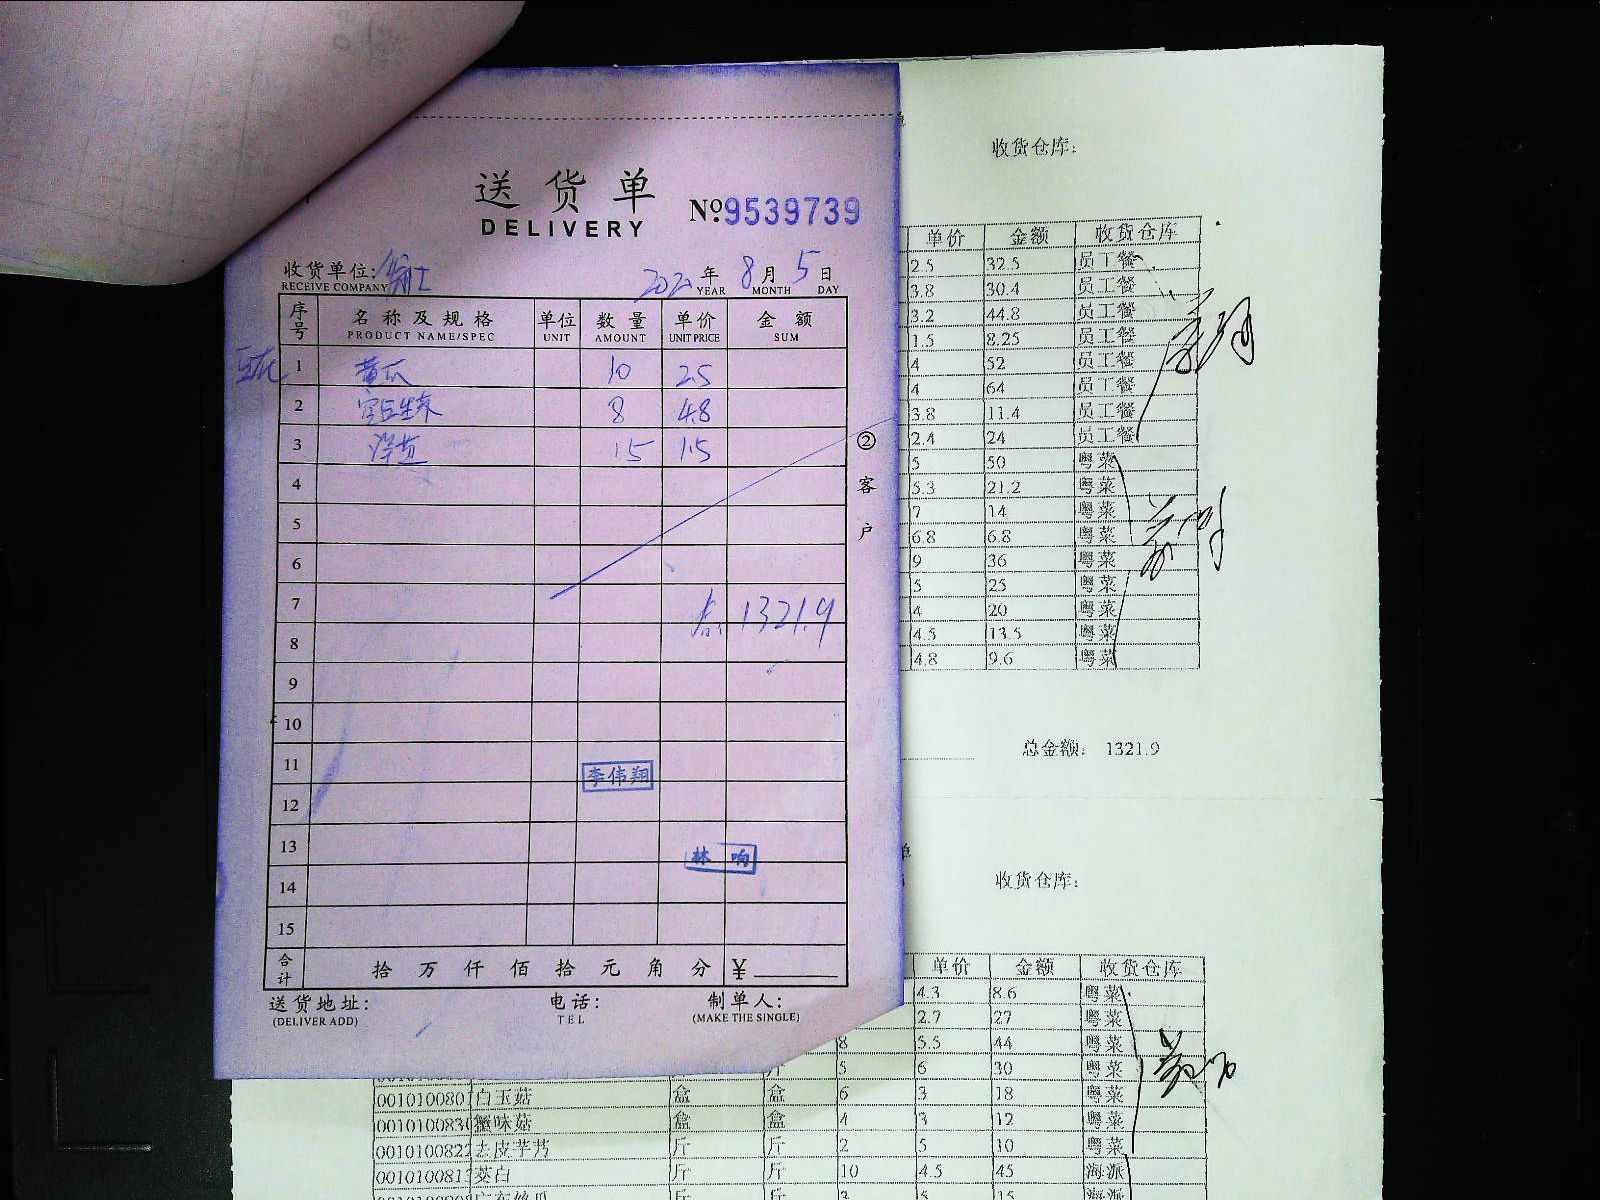 送货单
DELIVERY
№:9539739
收货单位:
RECEIVE COMPANY
2020年 8月 5日
YEAR MONTH DAY
序号 名称及规格 单位 数量 单价 金额
PRODUCT NAME/SPEC UNIT AMOUNT UNIT PRICE SUM
1 黄瓜 10 2.5
2 8 4.8
3 洋葱 15 1.5
4
5
6
7
8
1321.9
9
10
11
李伟翔
12
13
林响
14
15
合计 拾 万 仟 佰 拾 元 角 分 ¥
送货地址: 电话: 制单人:
(DELIVER ADD) TEL (MAKE THE SINGLE)
②客户
收货仓库:
单价 金额 收货仓库
2.5 32.5 员工餐
3.8 30.4 员工餐
3.2 44.8 员工餐
1.5 8.25 员工餐
4 52 员工餐
4 64 员工餐
3.8 11.4 员工餐
2.4 24 员工餐
5 50 粤菜
5.3 21.2 粤菜
7 14 粤菜
6.8 6.8 粤菜
9 36 粤菜
5 25 粤菜
4 20 粤菜
4.5 13.5 粤菜
4.8 9.6 粤菜
总金额: 1321.9
收货仓库:
单价 金额 收货仓库
4.3 8.6 粤菜
2.7 27 粤菜
8 5.5 44 粤菜
斤 5 6 30 粤菜
001010080 白玉菇 盒 盒 6 3 18 粤菜
001010083 蟹味菇 盒 盒 4 3 12 粤菜
0010100822 去皮芋艿 斤 斤 2 5 10 粤菜
001010081 茭白 斤 斤 10 4.5 45 海派
广东丝瓜 斤 斤 3 5 15 海派